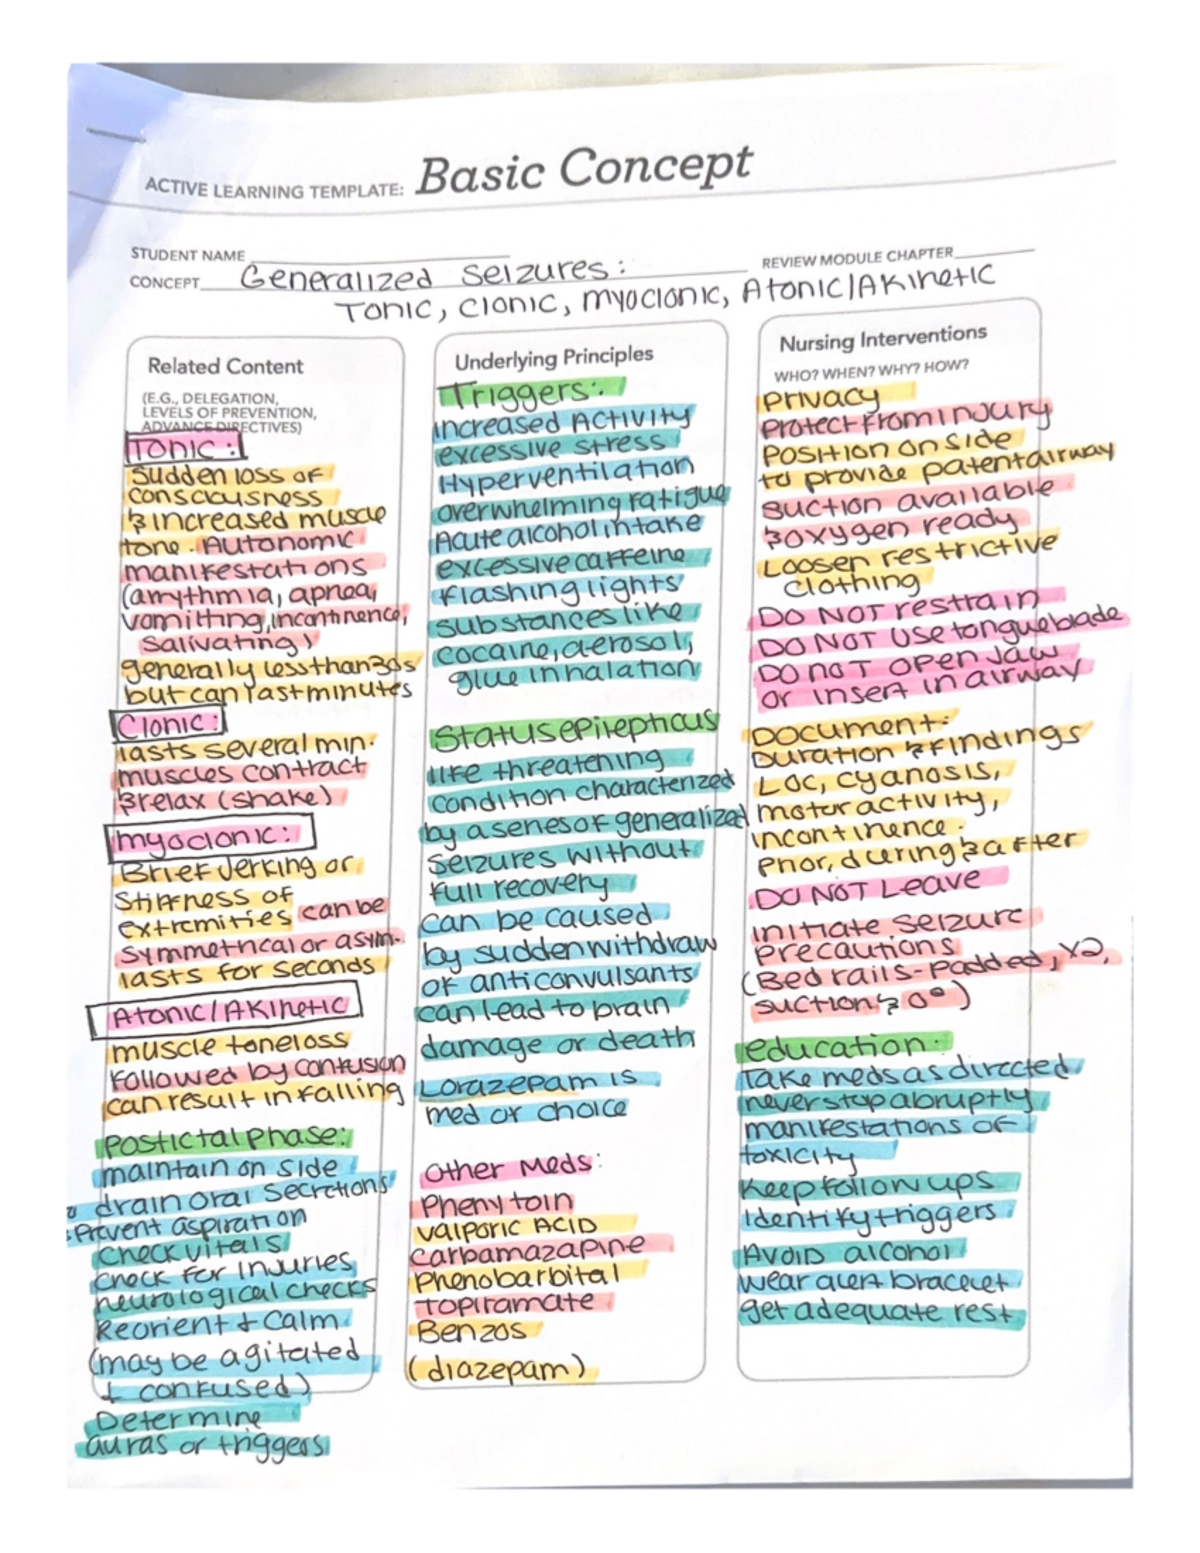 ACTIVE LEARNING TEMPLATE: Basic Concept
STUDENT NAME
REVIEW MODULE CHAPTER
CONCEPT Generalized Seizures:
Tonic, clonic, myoclonic, Atonic/Akinetic
Related Content
(E.G., DELEGATION,
LEVELS OF PREVENTION,
ADVANCE DIRECTIVES)
Tonic:
Sudden loss of
consciousness
& increased muscle
tone. Autonomic
manifestations
(arrythmia, apnea,
vomitting, incontinence,
Salivating)
generally less than 30s
but can last minutes
Clonic:
lasts several min.
muscles contract
& relax (shake)
myoclonic:
Brief Jerking or
Stiffness of
extremities can be
symmetrical or asym.
lasts for seconds
Atonic/Akinetic
muscle toneloss
Followed by confusion
can result in falling
Postictal phase:
maintain on side
drain oral secretions
Prevent aspiration
check vitals
check for injuries
neurological checks
Reorient + Calm
(may be agitated
+ confused)
Determine
auras or triggers
Underlying Principles
Triggers:
increased Activity
excessive stress
Hyperventilation
overwhelming fatigue
Acute alcohol intake
excessive caffeine
flashing lights
substances like
cocaine, aerosol,
glue inhalation
Status epilepticus
life threatening
condition characterized
by a series of generalized
seizures without
full recovery
can be caused
by sudden withdraw
of anticonvulsants
can lead to brain
damage or death
Lorazepam is
med of choice
Other Meds:
Phenytoin
Valporic ACID
Carbamazapine
Phenobarbital
Topiramate
Benzos
(diazepam)
Nursing Interventions
WHO? WHEN? WHY? HOW?
privacy
Protect from injury
Position on side
to provide patent airway
suction available
& oxygen ready
Loosen restrictive
clothing
DO NOT restrain
DO NOT use tongue blade
DO NOT open jaw
or insert in airway
Document:
Duration & findings
LOC, cyanosis,
motor activity,
incontinence.
Prior, during & after
DO NOT Leave
initiate seizure
precautions
(Bed rails-padded, x2,
suction & O²)
education:
Take meds as directed
never stop abruptly
manifestations of
toxicity
Keep follow ups
Identify triggers
Avoid alcohol
wear alert bracelet
get adequate rest